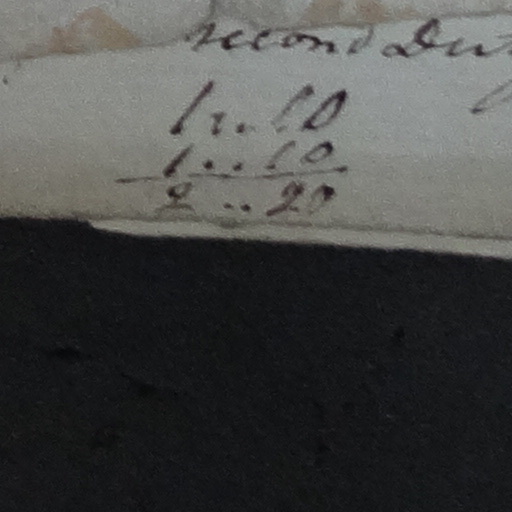 second
1..10
1...10
2..20